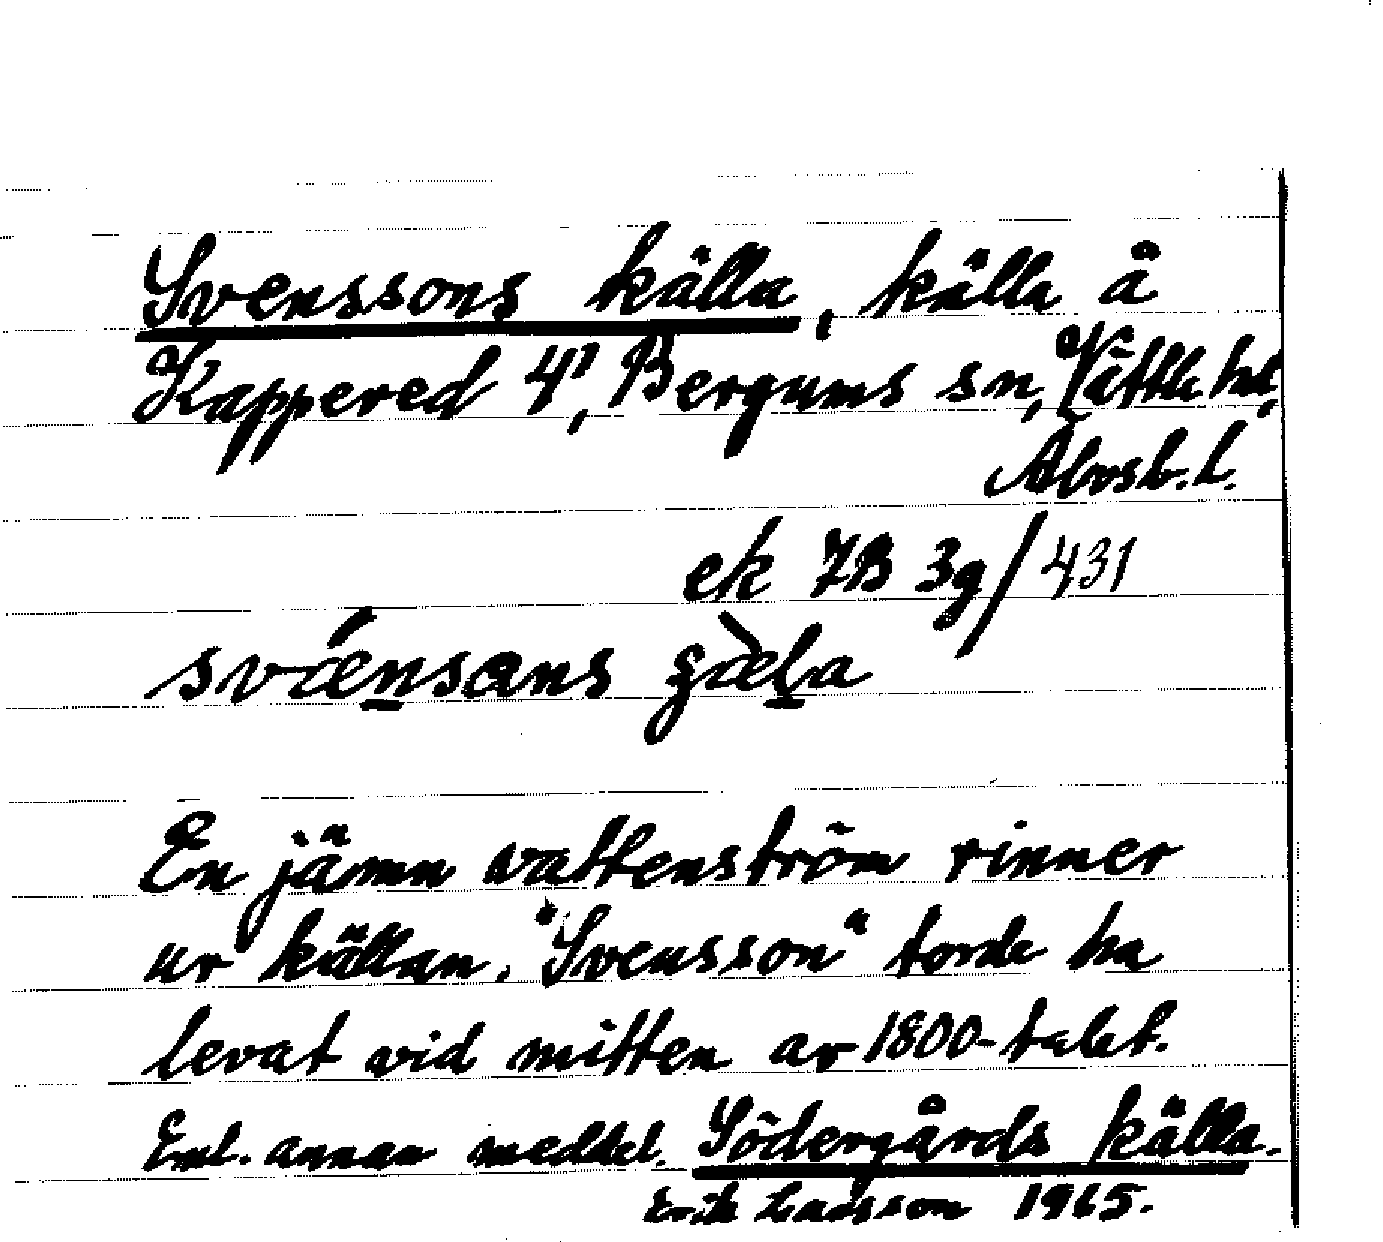 Svenssons källa, källa å
Kappered 4¹, Bergums sn, Vättle hd,
Älvsb. l.
ek 7B 3g/431
svǽnsans gæ̀la
En jämn vattenström rinner
ur källan. "Svensson" torde ha
levat vid mitten av 1800-talet.
Enl. annan meddel. Södergårds källa.
Erik Larsson 1965.